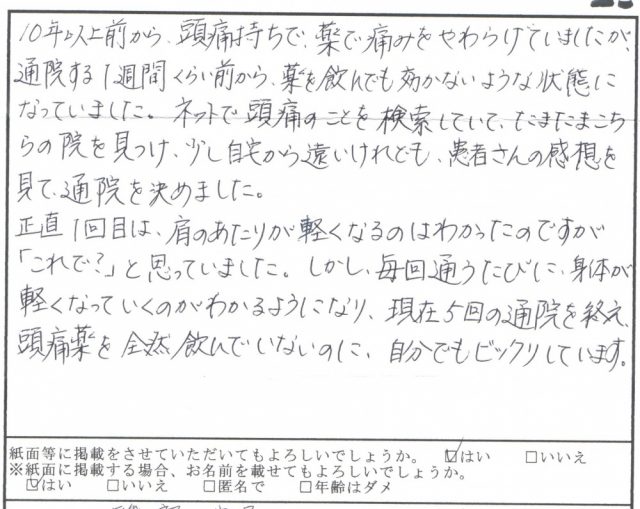 10年以上前から、頭痛持ちで、薬で痛みをやわらげていましたが、
通院する1週間くらい前から、薬を飲んでも効かないような状態に
なっていました。ネットで頭痛のことを検索していて、たまたまこち
らの院を見つけ、少し自宅から遠いけれども、患者さんの感想を
見て、通院を決めました。
正直1回目は、肩のあたりが軽くなるのはわかったのですが
「これで?」と思っていました。しかし、毎回通うたびに、身体が
軽くなっていくのがわかるようになり、現在5回の通院を終え、
頭痛薬を全然飲んでいないのに、自分でもビックリしています。
紙面等に掲載をさせていただいてもよろしいでしょうか。 ☑はい □いいえ
※紙面に掲載する場合、お名前を載せてもよろしいでしょうか。
☑はい □いいえ □匿名で □年齢はダメ